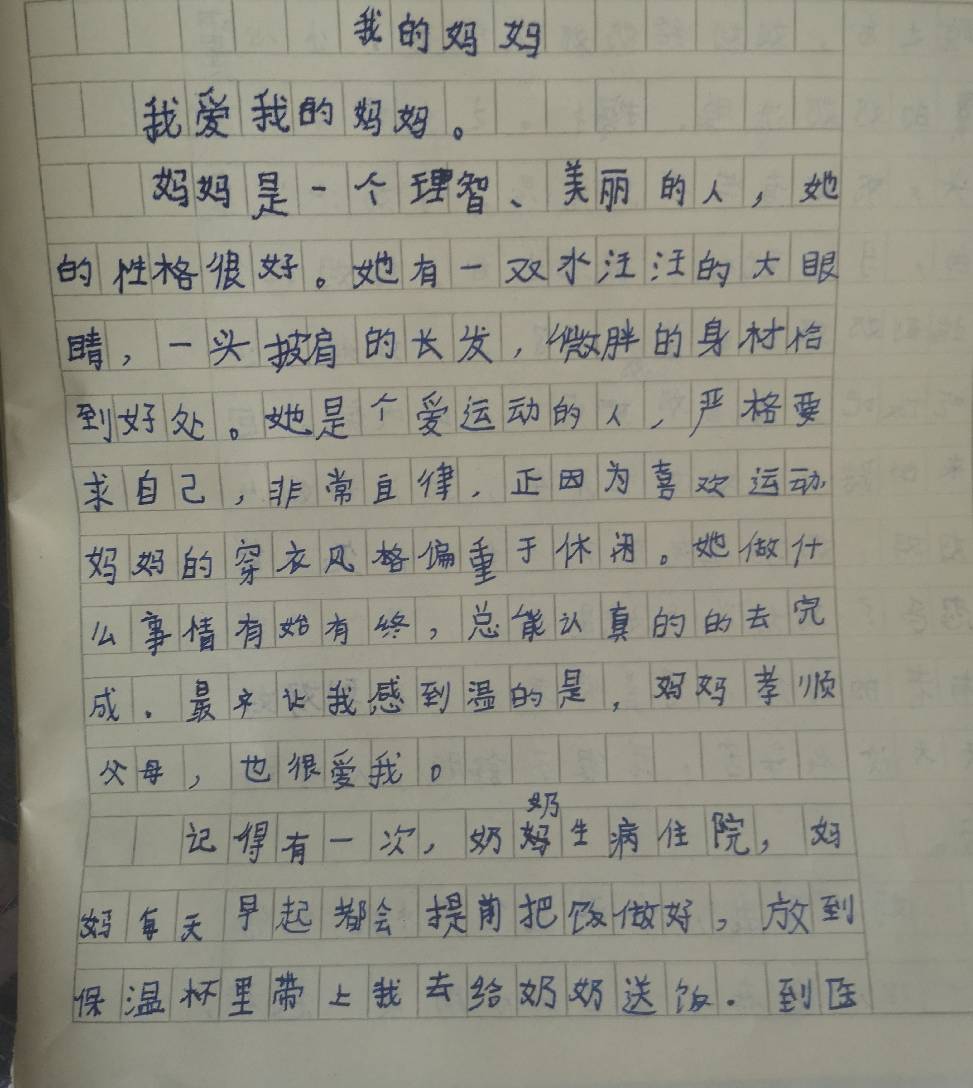 我的妈妈
我爱我的妈妈。
妈妈是一个理智、美丽的人，她
的性格很好。她有一双水汪汪的大眼
睛，一头披肩的长发，微胖的身材恰
到好处。她是个爱运动的人，严格要
求自己，非常自律．正因为喜欢运动
妈妈的穿衣风格偏重于休闲。她做什
么事情有始有终，总能认真的的去完
成．最让我感到温的是，妈妈孝顺
父母，也很爱我。
奶
记得有一次，奶生病住院，妈
妈每天早起都会提前把饭做好，放到
保温杯里带上我去给奶奶送饭．到医